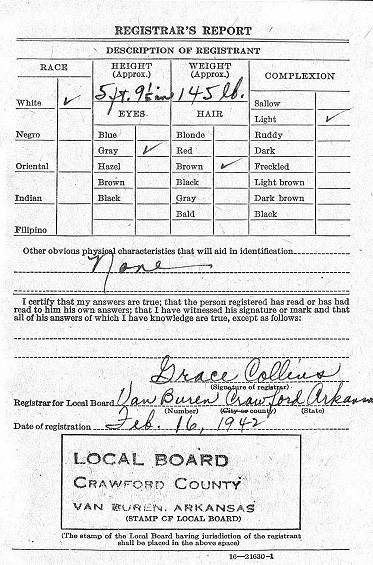 REGISTRAR'S REPORT
DESCRIPTION OF REGISTRANT
RACE
HEIGHT (Approx.)
WEIGHT (Approx.)
COMPLEXION
White ✓
5 ft. 9½ in
145 lb.
EYES
HAIR
Sallow
Light ✓
Negro
Blue
Blonde
Ruddy
Gray ✓
Red
Dark
Oriental
Hazel
Brown ✓
Freckled
Brown
Black
Light brown
Indian
Black
Gray
Dark brown
Bald
Black
Filipino
Other obvious physical characteristics that will aid in identification
None
I certify that my answers are true; that the person registered has read or has had
read to him his own answers; that I have witnessed his signature or mark and that
all of his answers of which I have knowledge are true, except as follows:
Grace Collins
(Signature of registrar)
Registrar for Local Board Van Buren Crawford Arkansas
(Number) (City or county) (State)
Date of registration Feb. 16, 1942
LOCAL BOARD
CRAWFORD COUNTY
VAN BUREN, ARKANSAS
(STAMP OF LOCAL BOARD)
(The stamp of the Local Board having jurisdiction of the registrant
shall be placed in the above space)
16—21630-1